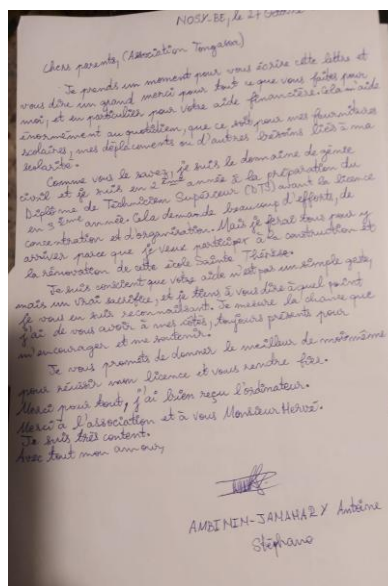 NOSY-BE, le 27 Octobre
Chers parents, (Association Tongasoa)
Je prends un moment pour vous écrire cette lettre et
vous dire un grand merci pour tout ce que vous faites pour
moi, et en particulier pour votre aide financière. Cela m'aide
énormément au quotidien, que ce soit pour mes fournitures
scolaires, mes déplacements ou d'autres besoins liés à ma
scolarité.
Comme vous le savez, je suis le domaine de génie
civil et je suis en 2ème année à la préparation du
Diplôme de Technicien Supérieur (DTS) avant la licence
en 3ème année. Cela demande beaucoup d'efforts, de
concentration et d'organisation. Mais je ferai tous pour y
arriver parce que je veux participer à la construction et
la rénovation de cette école Sainte Thérèse.
Je suis conscient que votre aide n'est pas un simple geste,
mais un vrai sacrifice, et je tiens à vous dire à quel point
je vous en suis reconnaissant. Je mesure la chance que
j'ai de vous avoir à mes côtés, toujours présents pour
m'encourager et me soutenir.
Je vous promets de donner le meilleur de moi-même
pour réussir mon licence et vous rendre fier.
Merci pour tout, j'ai bien reçu l'ordinateur.
Merci à l'association et à vous Monsieur Hervé.
Je suis très content.
Avec tout mon amour,
AMBININ-JANAHARY Antoine
Stéphano